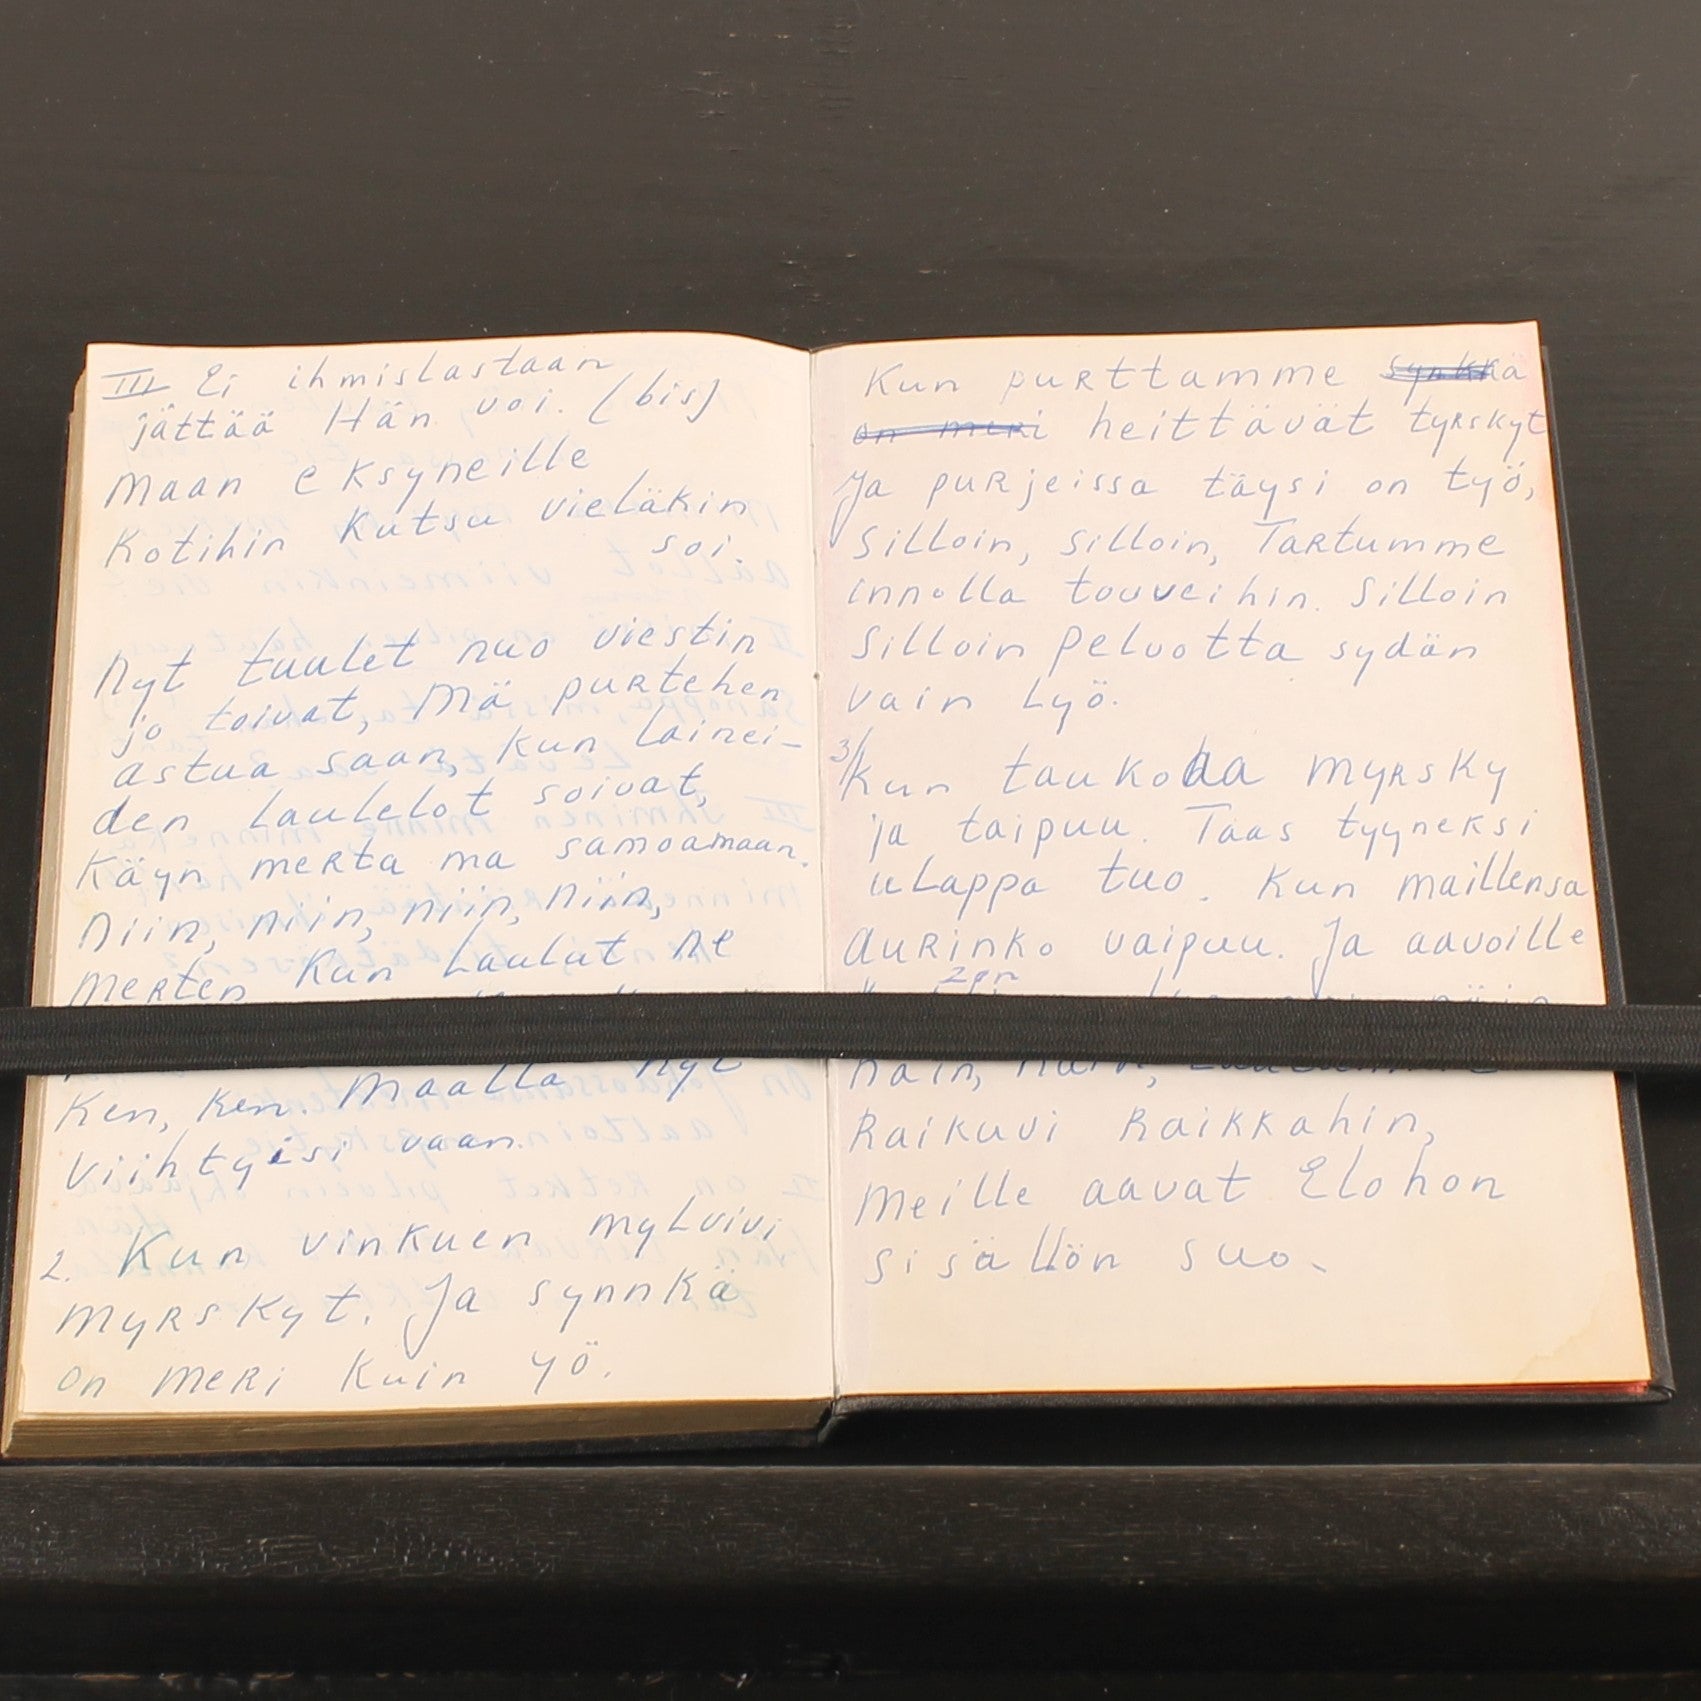 III Ei ihmislastaan
jättää Hän voi. (bis)
Maan eksyneille
Kotihin Kutsu vieläkin
soi.
Nyt tuulet nuo viestin
jo toivat, Mä purtehen
astua saan, Kun Lainei-
den Laulelot soivat,
Käyn merta ma samoamaan.
Niin, niin, niin, niin,
Merten Kun Laulut ne
Ken, Ken. Maalla nyt
Viihtyisi vaan.
2. Kun vinkuen myLvivi
Myrskyt. Ja synnkä
on meri Kuin yö.
Kun purttamme synkkä
on meri heittävät tyrskyt
Ja purjeissa täysi on työ,
Silloin, silloin, Tartumme
innolla touveihin. Silloin
Silloin pelvotta sydän
vain Lyö.
3/ Kun taukoaa Myrsky
ja taipuu. Taas tyyneksi
uLappa tuo. Kun maillensa
aurinko vaipuu. Ja aavoille
näin
Raikuvi Raikkahin,
Meille aavat Elohon
Sisällön suo.